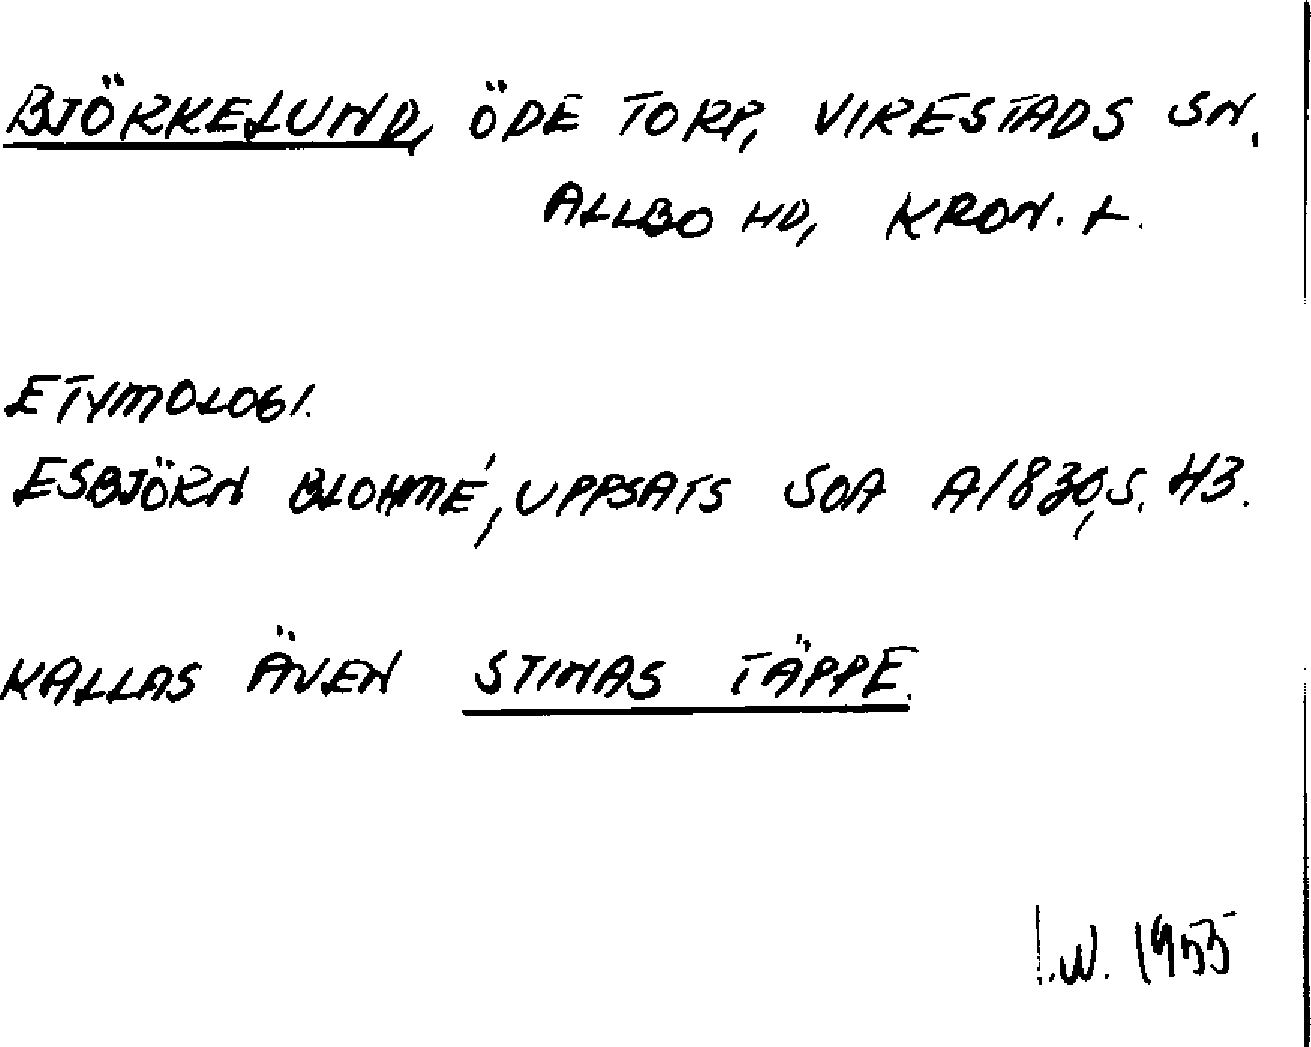 BJÖRKELUND, ÖDE TORP, VIRESTADS SN.
ALLBO HD, KRON. L.
ETYMOLOGI.
ESBJÖRN BLOHMÉ, UPPSATS SOA A1830, S. 43.
KALLAS ÄVEN STINAS TÄPPE.
I.W. 1955